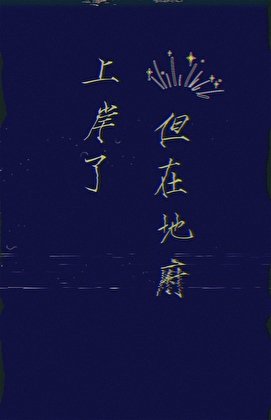 但在地府
上岸了